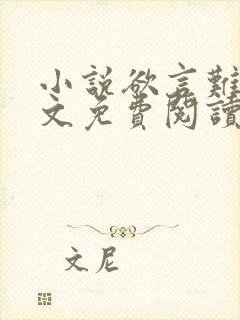 小說欲言難
文免費閱讀
文尼